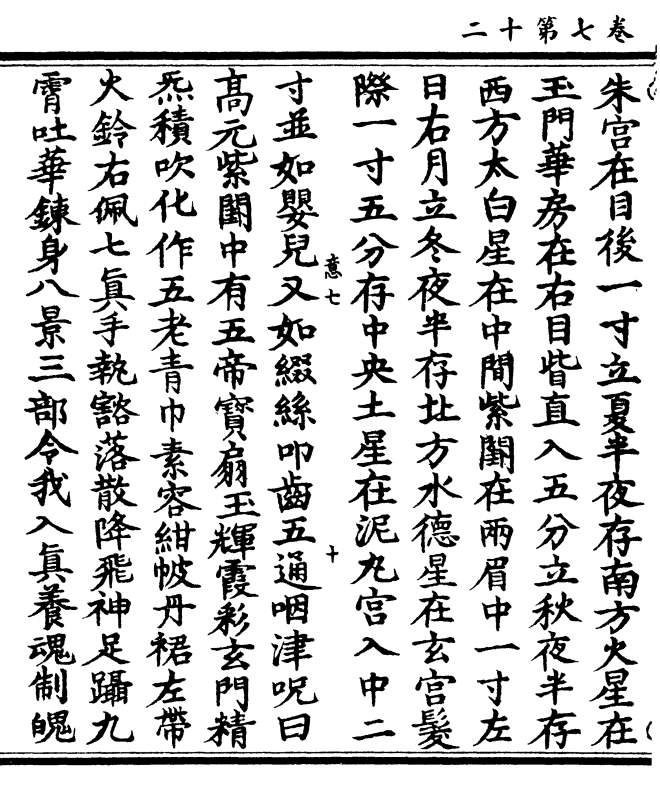 二十第七卷
朱宮在目後一寸立夏半夜存南方火星在
玉門華房在右目眥直入五分立秋夜半存
西方太白星在中間紫闈在兩眉中一寸左
日右月立冬夜半存北方水德星在玄宮髮
際一寸五分存中央土星在泥丸宮入中二
意七
十
寸並如嬰兒又如綴絲叩齒五通咽津呪曰
高元紫闈中有五帝寶扇玉輝霞彩玄門精
炁積吹化作五老青巾素容紺帔丹裙左帶
火鈴右佩七眞手執豁落散降飛神足躡九
霄吐華鍊身八景三部令我入眞養魂制魄